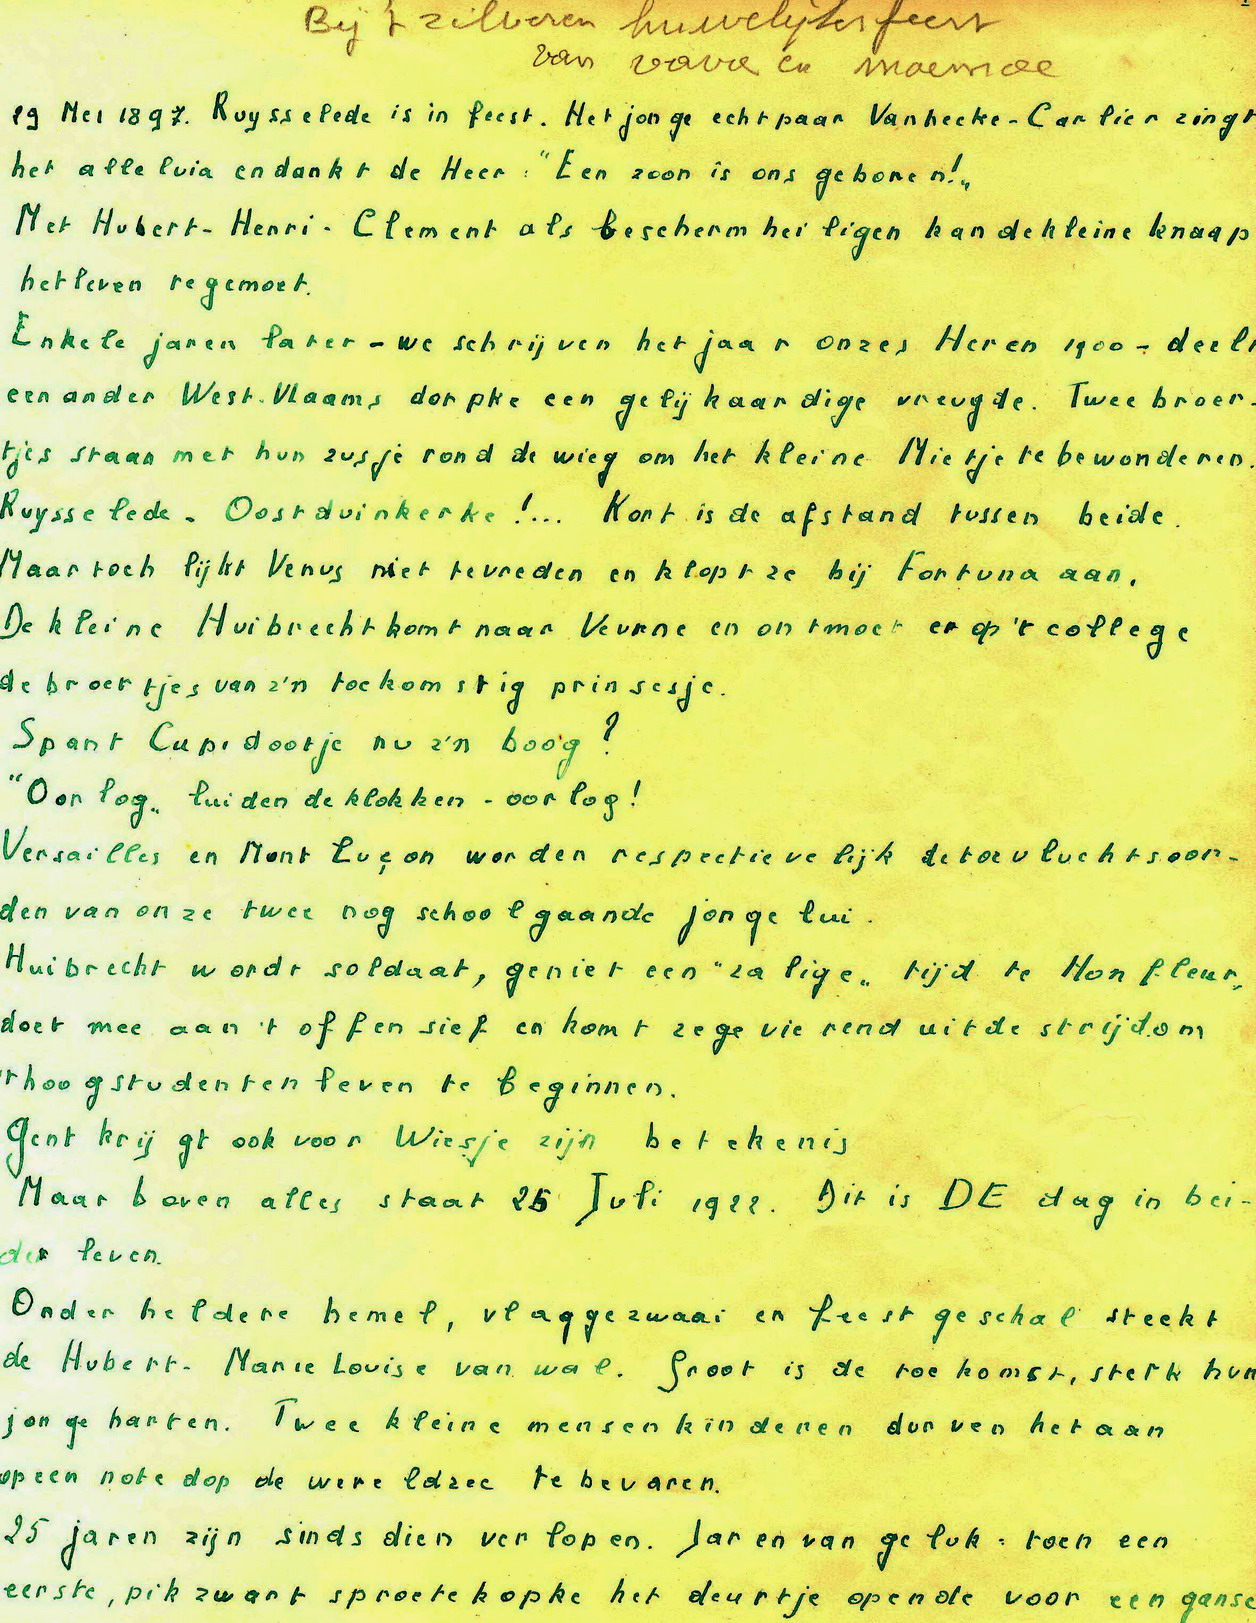 Bij 't zilveren huwelijksfeest
van vava en moemoe
19 Mei 1897. Ruysselede is in feest. Het jonge echtpaar Vanhecke-Carlier zingt
het alleluia en dankt de Heer: "Een zoon is ons geboren!"
Met Hubert-Henri-Clement als beschermheiligen kan de kleine knaap
het leven tegemoet.
Enkele jaren later - we schrijven het jaar onzes Heren 1900 - deelt
een ander West.Vlaams dorpke een gelijkaardige vreugde. Twee broer-
tjes staan met hun zusje rond de wieg om het kleine Mietje te bewonderen.
Ruysselede - Oostduinkerke!... Kort is de afstand tussen beide.
Maar toch lijkt Venus niet tevreden en klopt ze bij Fortuna aan.
De kleine Huibrecht komt naar Veurne en ontmoet er op 't college
de broertjes van z'n toekomstig prinsesje.
Spant Cupidootje nu z'n boog?
"Oorlog" luiden de klokken - oorlog!
Versailles en Mont Luçon worden respectievelijk de toevluchtsoor-
den van onze twee nog schoolgaande jonge lui.
Huibrecht wordt soldaat, geniet een "zalige" tijd te Honfleur,
doet mee aan 't offensief en komt zegevierend uit de strijd om
't hoogstudentenleven te beginnen.
Gent krijgt ook voor Wiesje zijn betekenis
Maar boven alles staat 25 Juli 1922. Dit is DE dag in bei-
der leven.
Onder heldere hemel, vlaggezwaai en feestgeschal steekt
de Hubert-Marie Louise van wal. Groot is de toekomst, sterk hun
jonge harten. Twee kleine mensenkinderen durven het aan
op een notedop de wereldzee te bevaren.
25 jaren zijn sindsdien verlopen. Jaren van geluk: toen een
eerste, pikzwart sproetekopke het deurtje opende voor een ganse